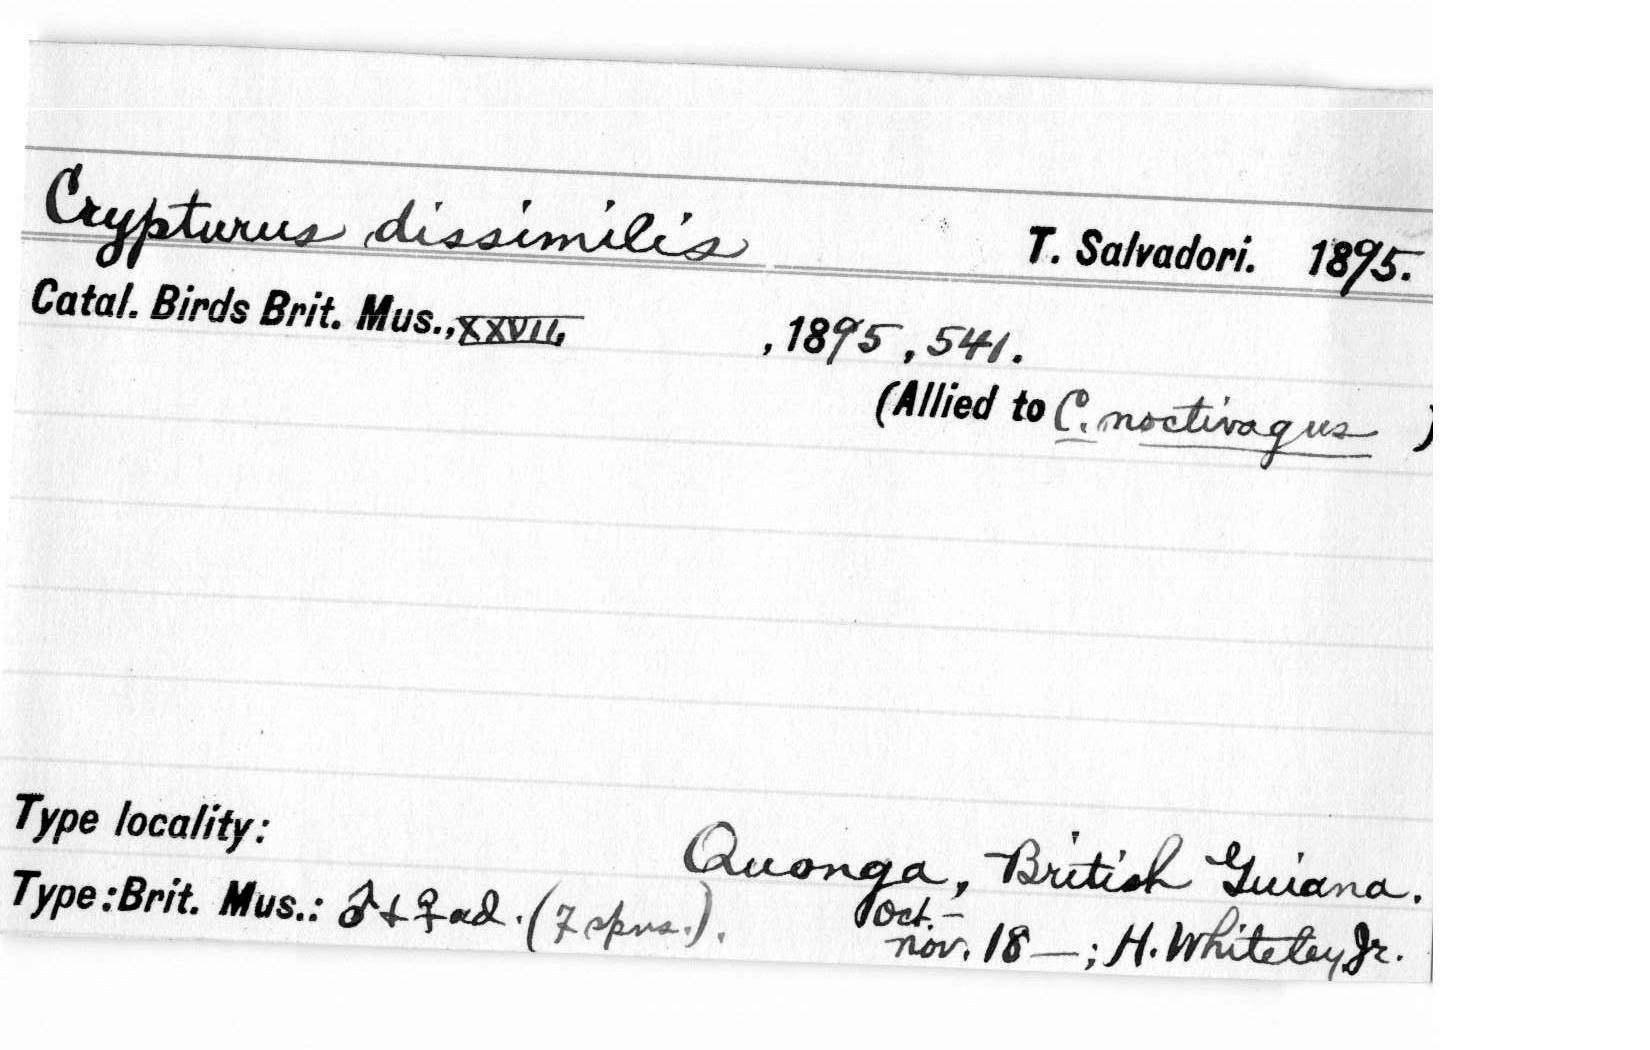 Crypturus dissimilis T. Salvadori. 1895.
Catal. Birds Brit. Mus., XXVII, , 1895, 541.
(Allied to C. noctivagus )
Type locality:
Quonga, British Guiana.
Type: Brit. Mus.: ♂ + ♀ ad. (7 spns.). Oct. –
nov. 18 —; H. Whiteley Jr.